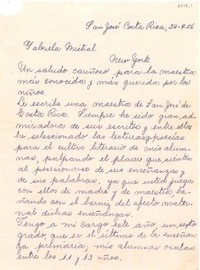 San José Costa Rica, 22-9-55
Gabriela Mistral
New York
Un saludo cariñoso para la maestra
más conocida y más querida por los
niños.
Le escribe una maestra de San José de
Costa Rica. Siempre he sido gran ad-
miradora de sus escritos y entre ellos
he seleccionado las lecturas y poesías
para el cultivo literario de mis alum-
nas, palpando el placer que sienten
al posesionarse de sus enseñanzas y
de sus palabras, ya que usted juega
con ellos de madre y de maestra, ba-
ñando con el barniz del afecto mater-
nal dichas enseñanzas.
Tengo a mi cargo este año, un sexto
grado que es el último de la enseñan-
za primaria; mis alumnas oscilan
entre los 11 y 13 años.